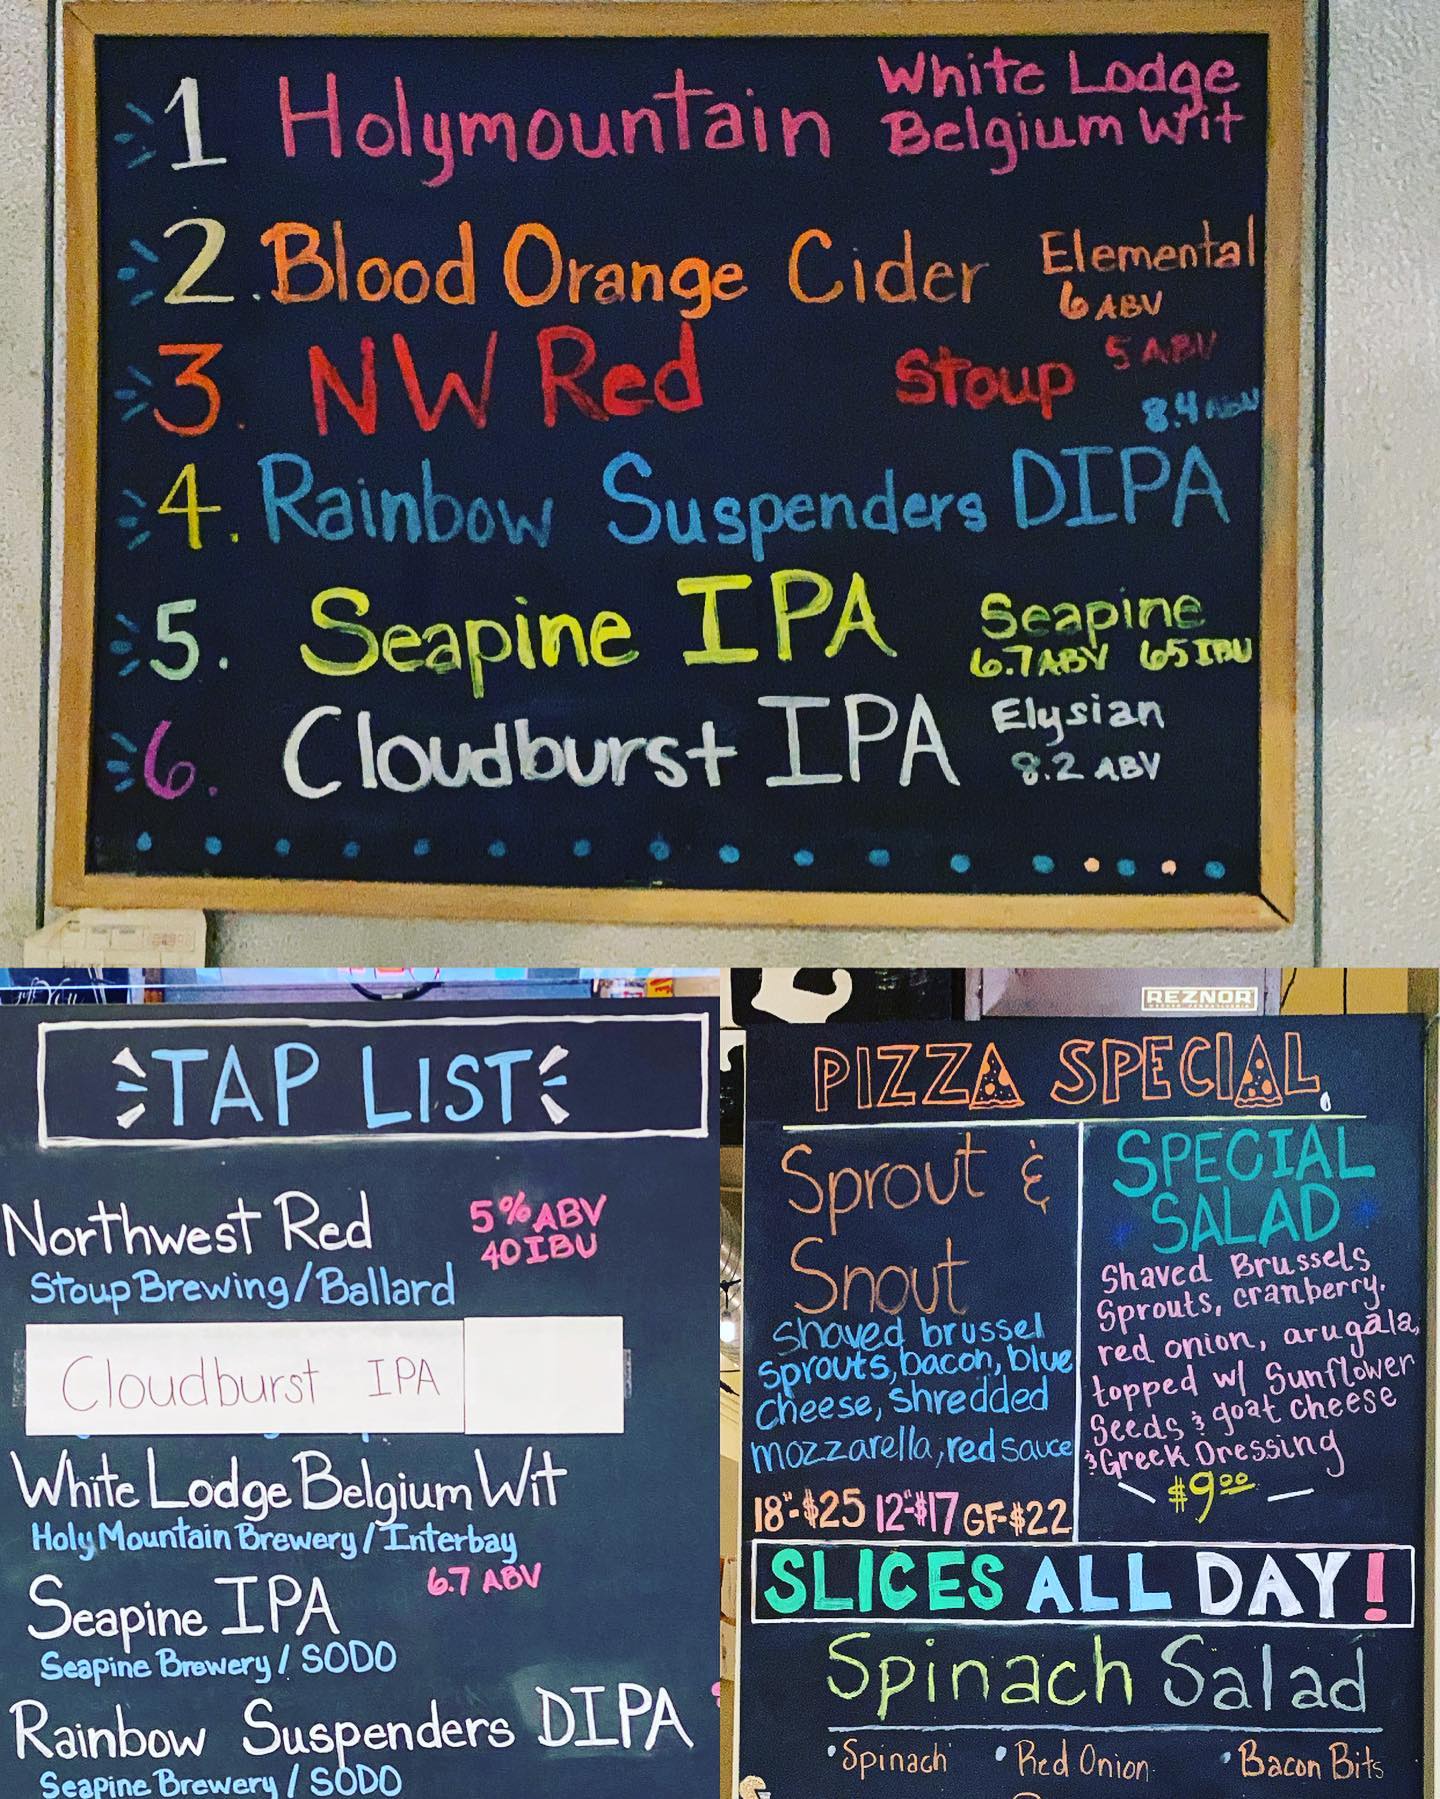 1 Holymountain White Lodge
Belgium Wit
2. Blood Orange Cider Elemental
6 ABV
3. NW Red Stoup 5 ABV
8.4 ABV
4. Rainbow Suspenders DIPA
5. Seapine IPA Seapine
6.7 ABV 65 IBU
6. Cloudburst IPA Elysian
8.2 ABV
TAP LIST
Northwest Red 5% ABV
40 IBU
Stoup Brewing/Ballard
Cloudburst IPA
White Lodge Belgium Wit
Holy Mountain Brewery/Interbay
6.7 ABV
Seapine IPA
Seapine Brewery / SODO
Rainbow Suspenders DIPA
Seapine Brewery / SODO
REZNOR
PIZZA SPECIAL
Sprout &
Snout
Shaved brussel
sprouts, bacon, blue
cheese, shredded
mozzarella, red sauce
18"-$25 12"-$17 GF-$22
SPECIAL
SALAD
Shaved Brussels
Sprouts, cranberry.
red onion, arugala,
topped w/ Sunflower
Seeds & goat cheese
& Greek Dressing
$9.00
SLICES ALL DAY!
Spinach Salad
• Spinach • Red Onion • Bacon Bits